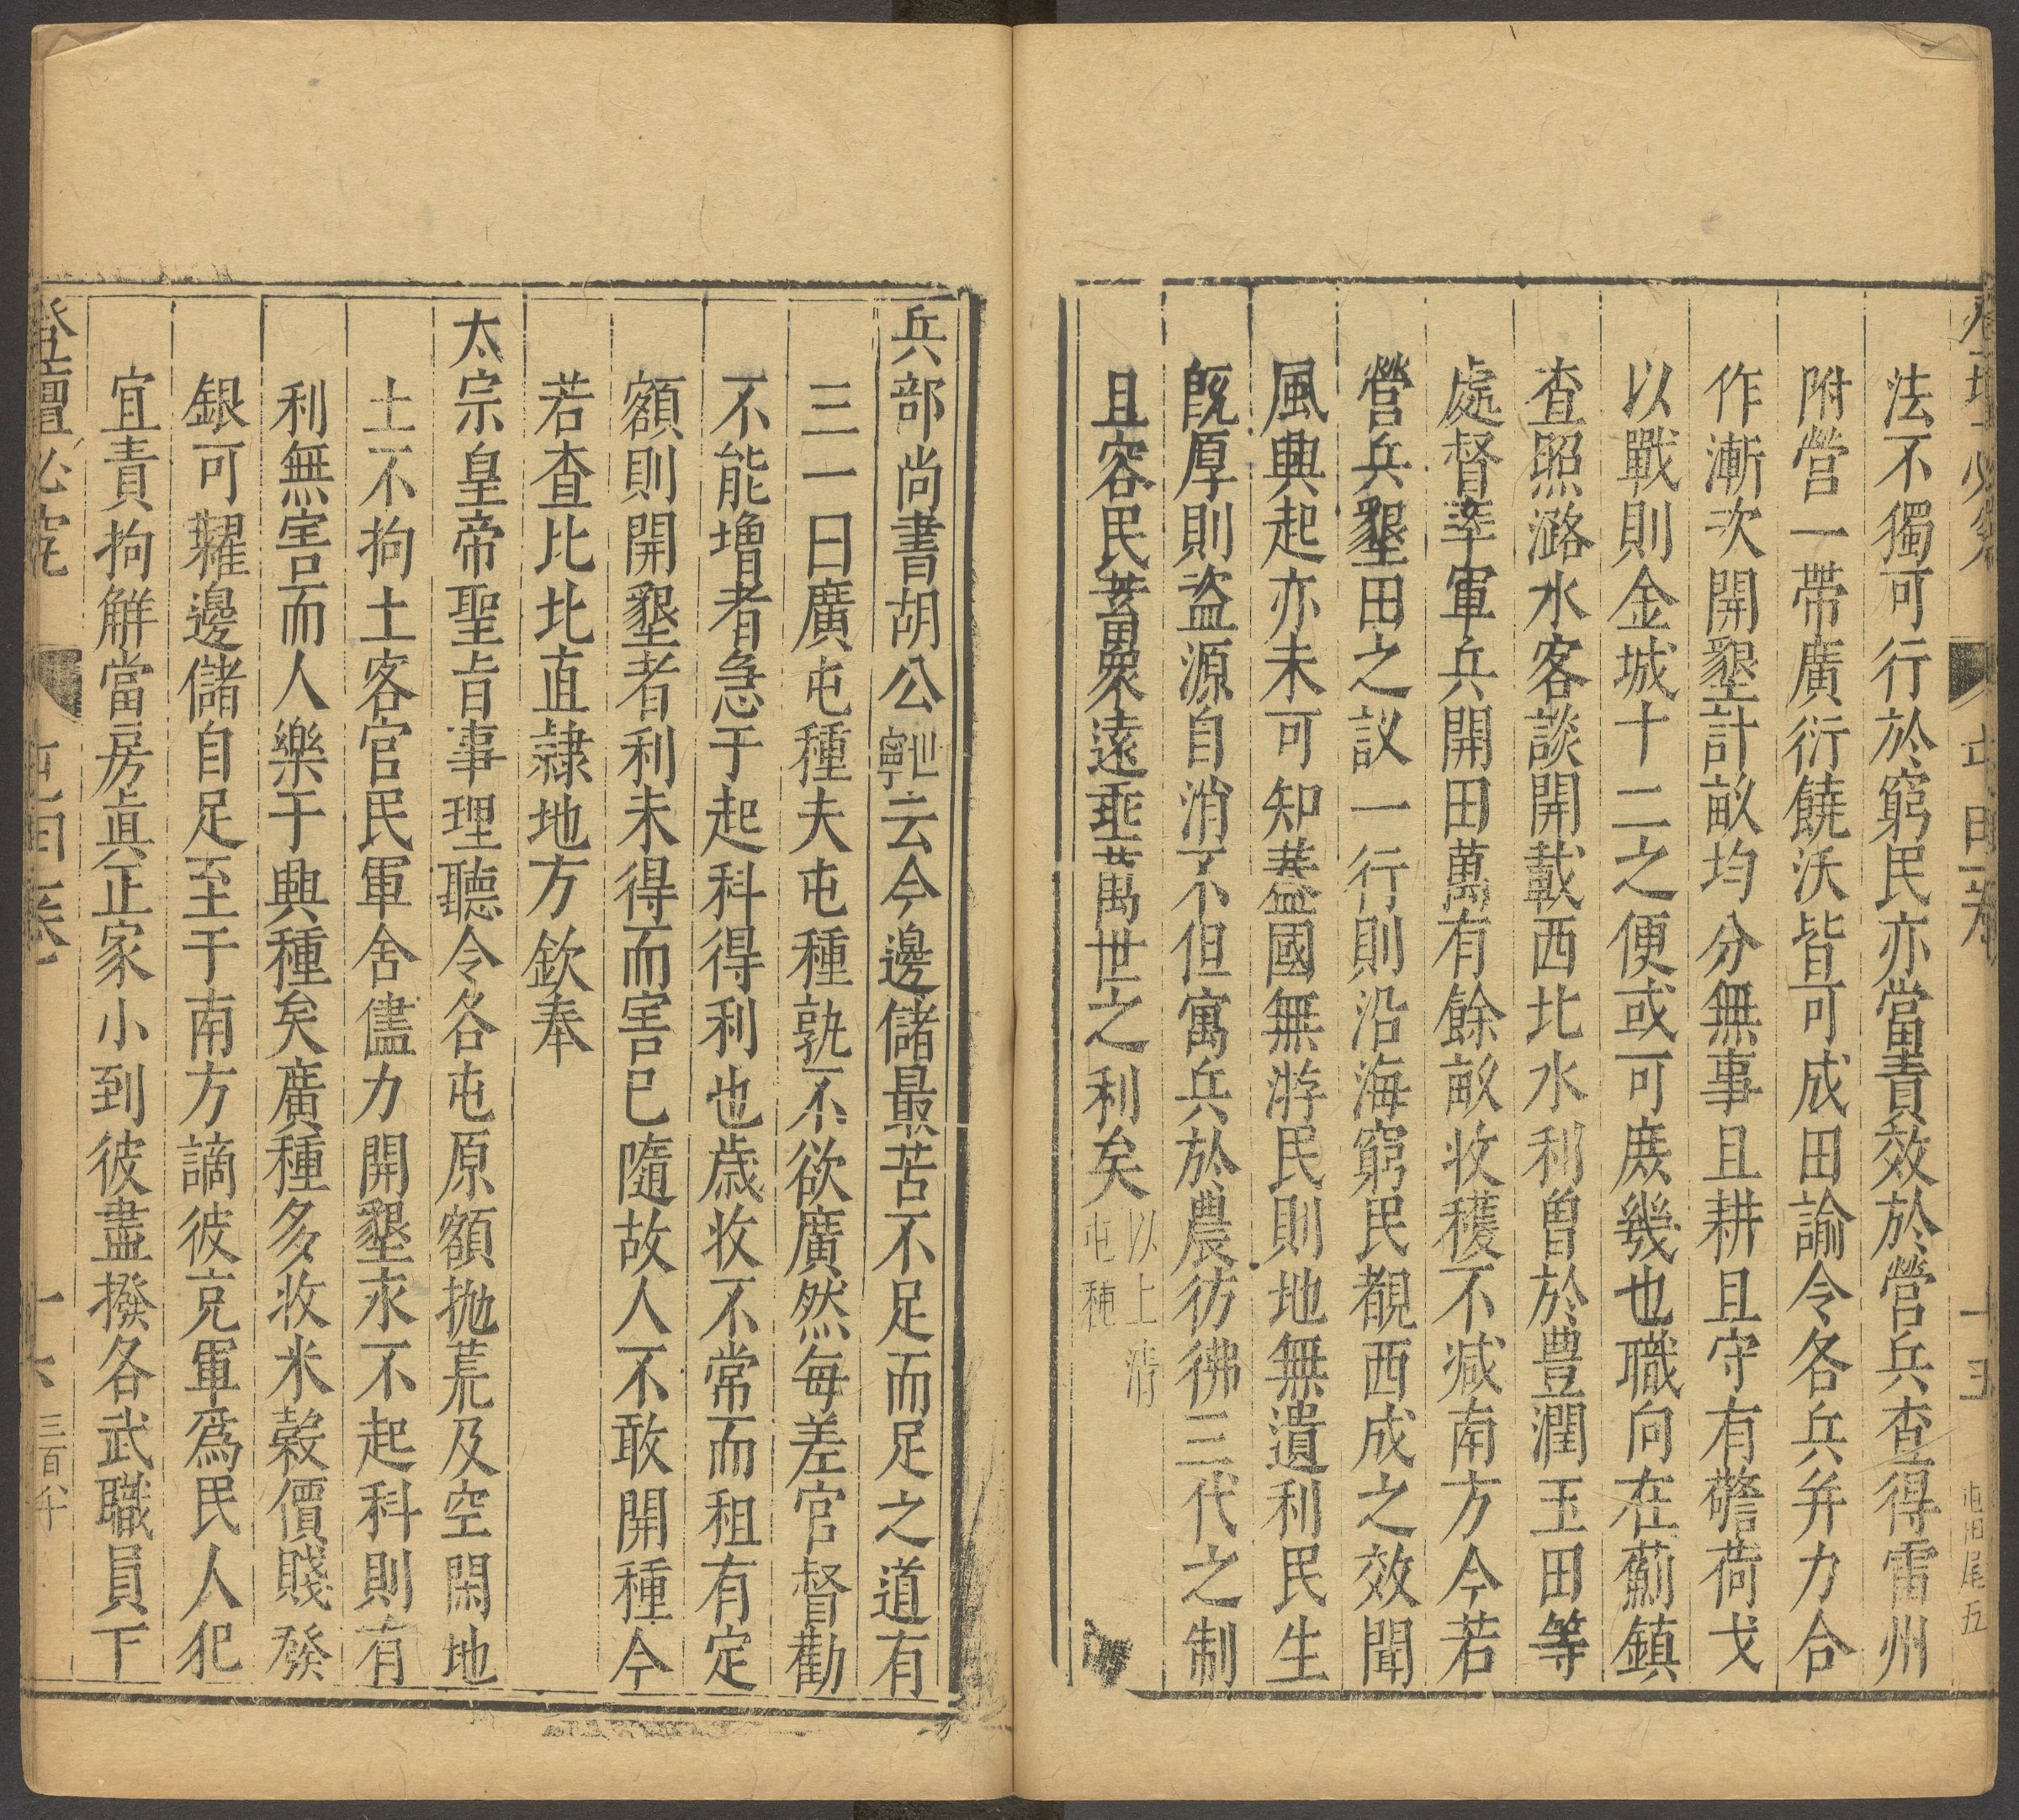 法不獨可行於窮民亦當責效於營兵查得雷州
附營一帶廣衍饒沃皆可成田諭令各兵并力合
作漸次開墾計畝均分無事且耕且守有警荷戈
以戰則金城十二之便或可庶幾也職向在薊鎮
查照潞水客談開載西北水利曽於豊潤玉田等
處督率軍兵開田萬有餘畝收穫不减南方今若
營兵墾田之議一行則沿海窮民覩西成之效聞
風興起亦未可知葢國無游民則地無遺利民生
旣厚則盗源自消不但寓兵於農彷彿三代之制
且容民畜衆遠垂萬世之利矣以上清
屯種
兵部尚書胡公世寧云今邊儲最苦不足而足之道有
三一曰廣屯種夫屯種孰不欲廣然每差官督勸
不能增者急于起科得利也歳收不常而租有定
額則開墾者利未得而害已隨故人不敢開種今
若查比北直隷地方欽奉
太宗皇帝聖旨事理聽令各屯原額抛荒及空閑地
土不拘土客官民軍舍儘力開墾永不起科則有
利無害而人樂于興種矣廣種多收米穀價賤發
銀可糴邊儲自足至于南方謫彼充軍爲民人犯
宜責拘解當房真正家小到彼盡撥各武職員下
登壇必究
屯田卷
十六
三百八十